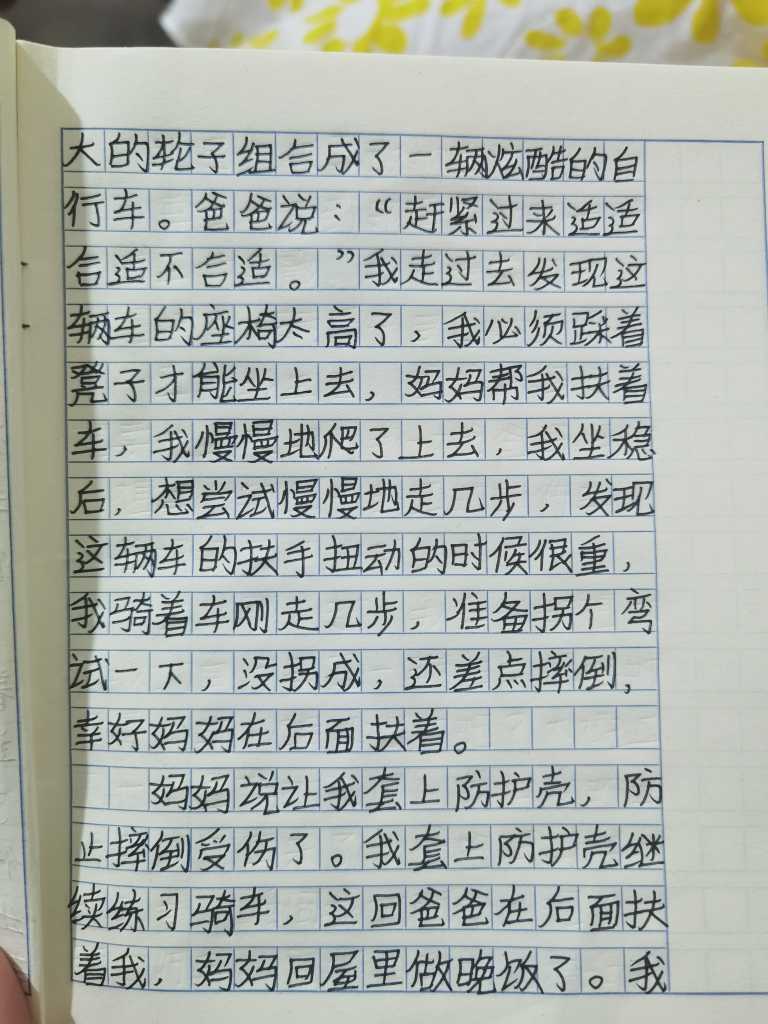 大的轮子组合成了一辆炫酷的自
行车。爸爸说：“赶紧过来适适
合适不合适。”我走过去发现这
辆车的座椅太高了，我必须踩着
凳子才能坐上去，妈妈帮我扶着
车，我慢慢地爬了上去，我坐稳
后，想尝试慢慢地走几步，发现
这辆车的扶手扭动的时候很重，
我骑着车刚走几步，准备拐个弯
试一下，没拐成，还差点摔倒，
幸好妈妈在后面扶着。
妈妈说让我套上防护壳，防
止摔倒受伤了。我套上防护壳继
续练习骑车，这回爸爸在后面扶
着我，妈妈回屋里做晚饭了。我